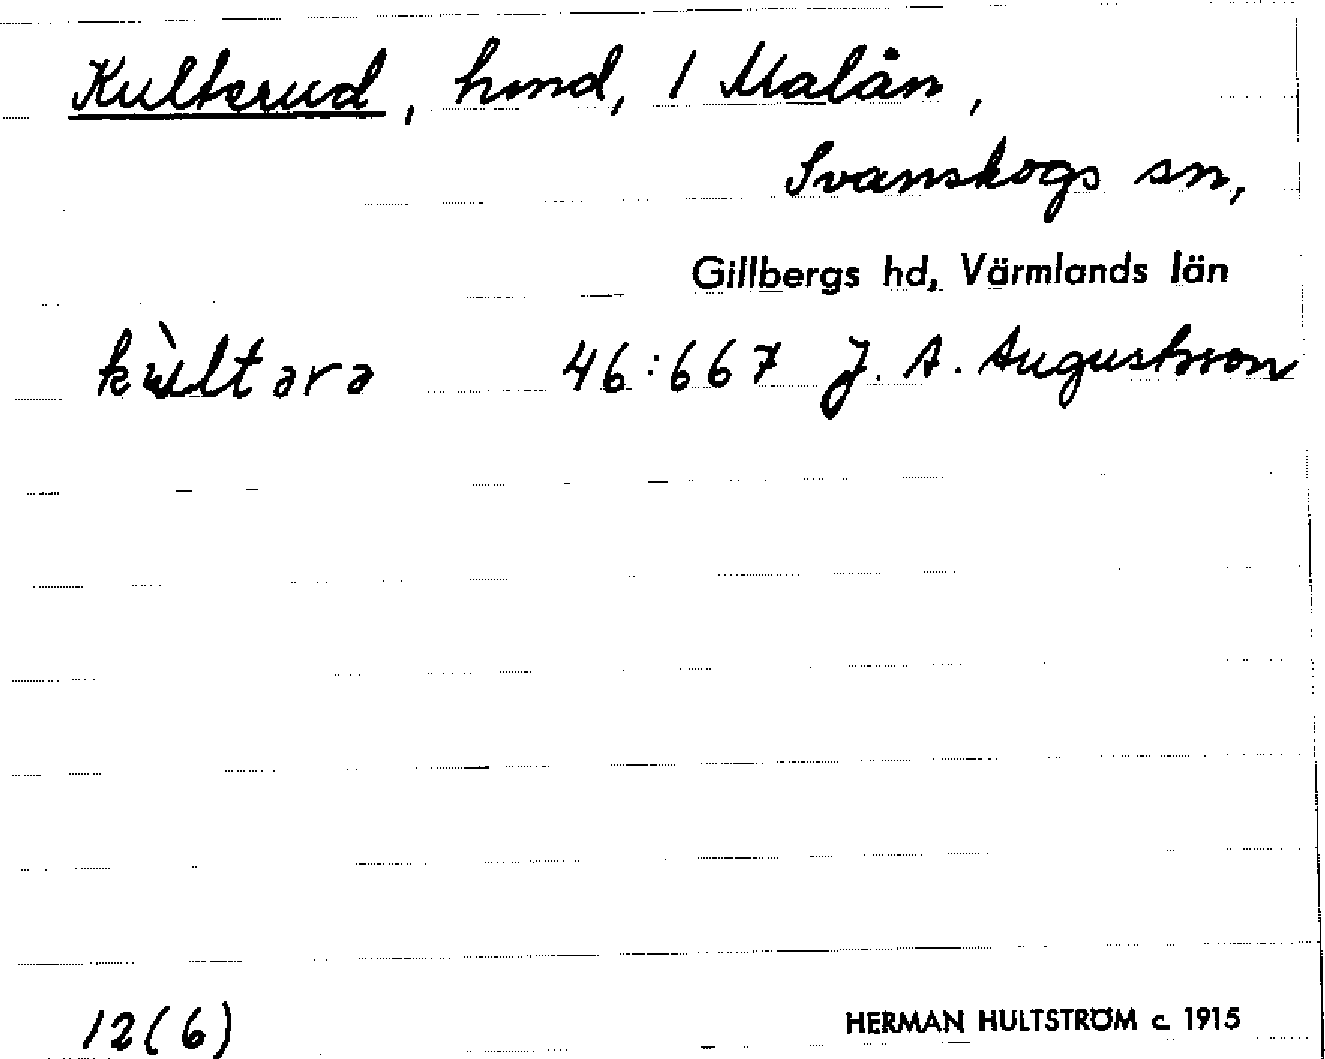 Kulterud, hmd, 1 Malån,
Svanskogs sn,
Gillbergs hd, Värmlands län
kùltərə 46:667 J. A. Augustsson
12(6) HERMAN HULTSTRÖM c. 1915